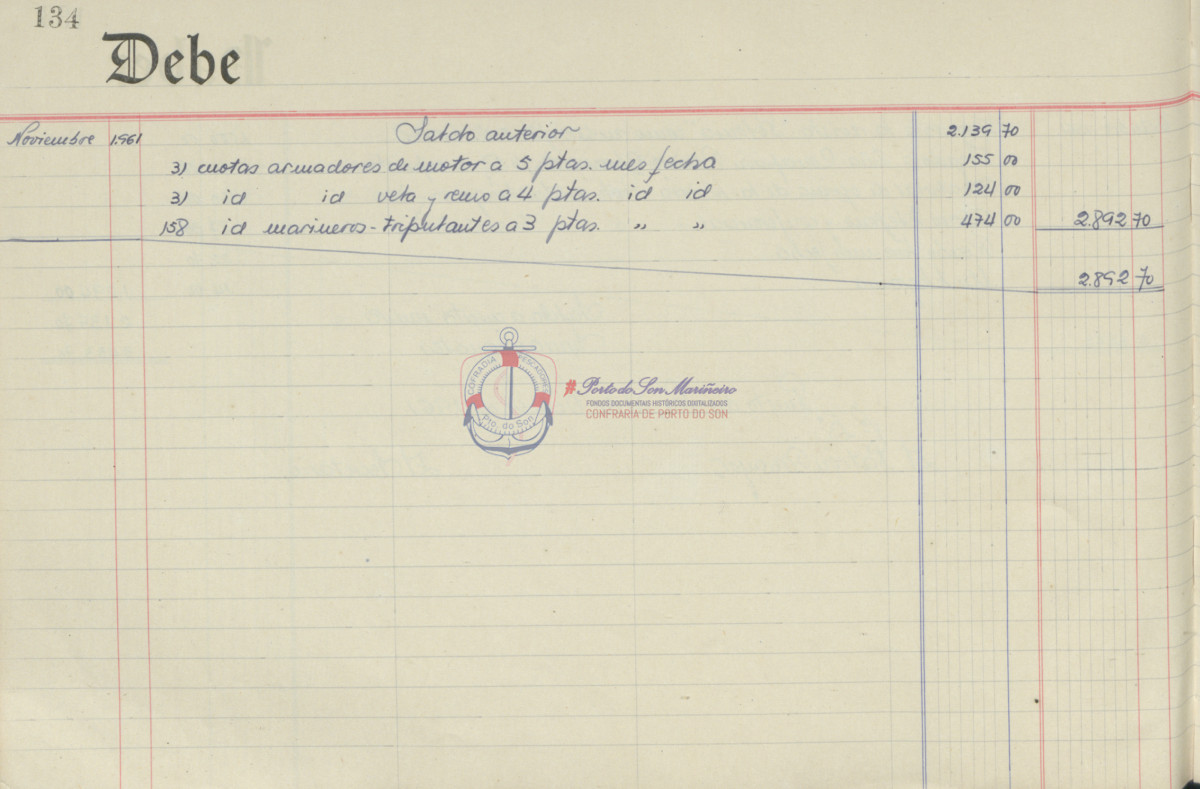 134
Debe
Noviembre 1.961 Saldo anterior 2.139 70
31 cuotas armadores de motor a 5 ptas. mes fecha 155 00
31 id id vela y remo a 4 ptas. id id 124 00
158 id marineros-tripulantes a 3 ptas. " " 474 00 2.892 70
2.892 70
COFRADIA PESCADORES
Pto. do Son
#Porto do Son Mariñeiro
FONDOS DOCUMENTAIS HISTÓRICOS DIXITALIZADOS
CONFRARIA DE PORTO DO SON